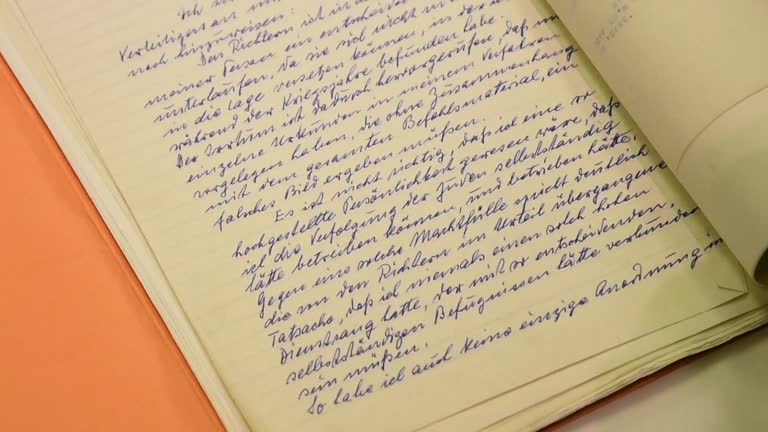 Ich
Verteidigers an
noch hinzuweisen:
Den Richtern ist in
meiner Person ein entscheidender
unterlaufen, da sie sich nicht in
in die Lage versetzen können, in der ich
während der Kriegsjahre befunden habe.
Der Irrtum ist dadurch hervorgerufen, daß man
einzelne Urkunden in meinem Verfahren
vorgelegen haben, die ohne Zusammenhang
mit dem gesamten Befehlsmaterial, ein
falsches Bild ergeben mußen.
Es ist nicht richtig, daß ich eine so
hochgestellte Persönlichkeit gewesen wäre, daß
ich die Verfolgung der Juden selbständig
hätte betreiben können, und betrieben hätte,
Gegen eine solche Machtfülle spricht deutlich
die von den Richtern im Urteil übergangene
Tatsache, daß ich niemals einen solch hohen
Dienstrang hatte, der mit so entscheidenden,
selbstständigen Befugnissen hätte verbunden
sein müßen.
So habe ich auch keine einzige Anordnung im